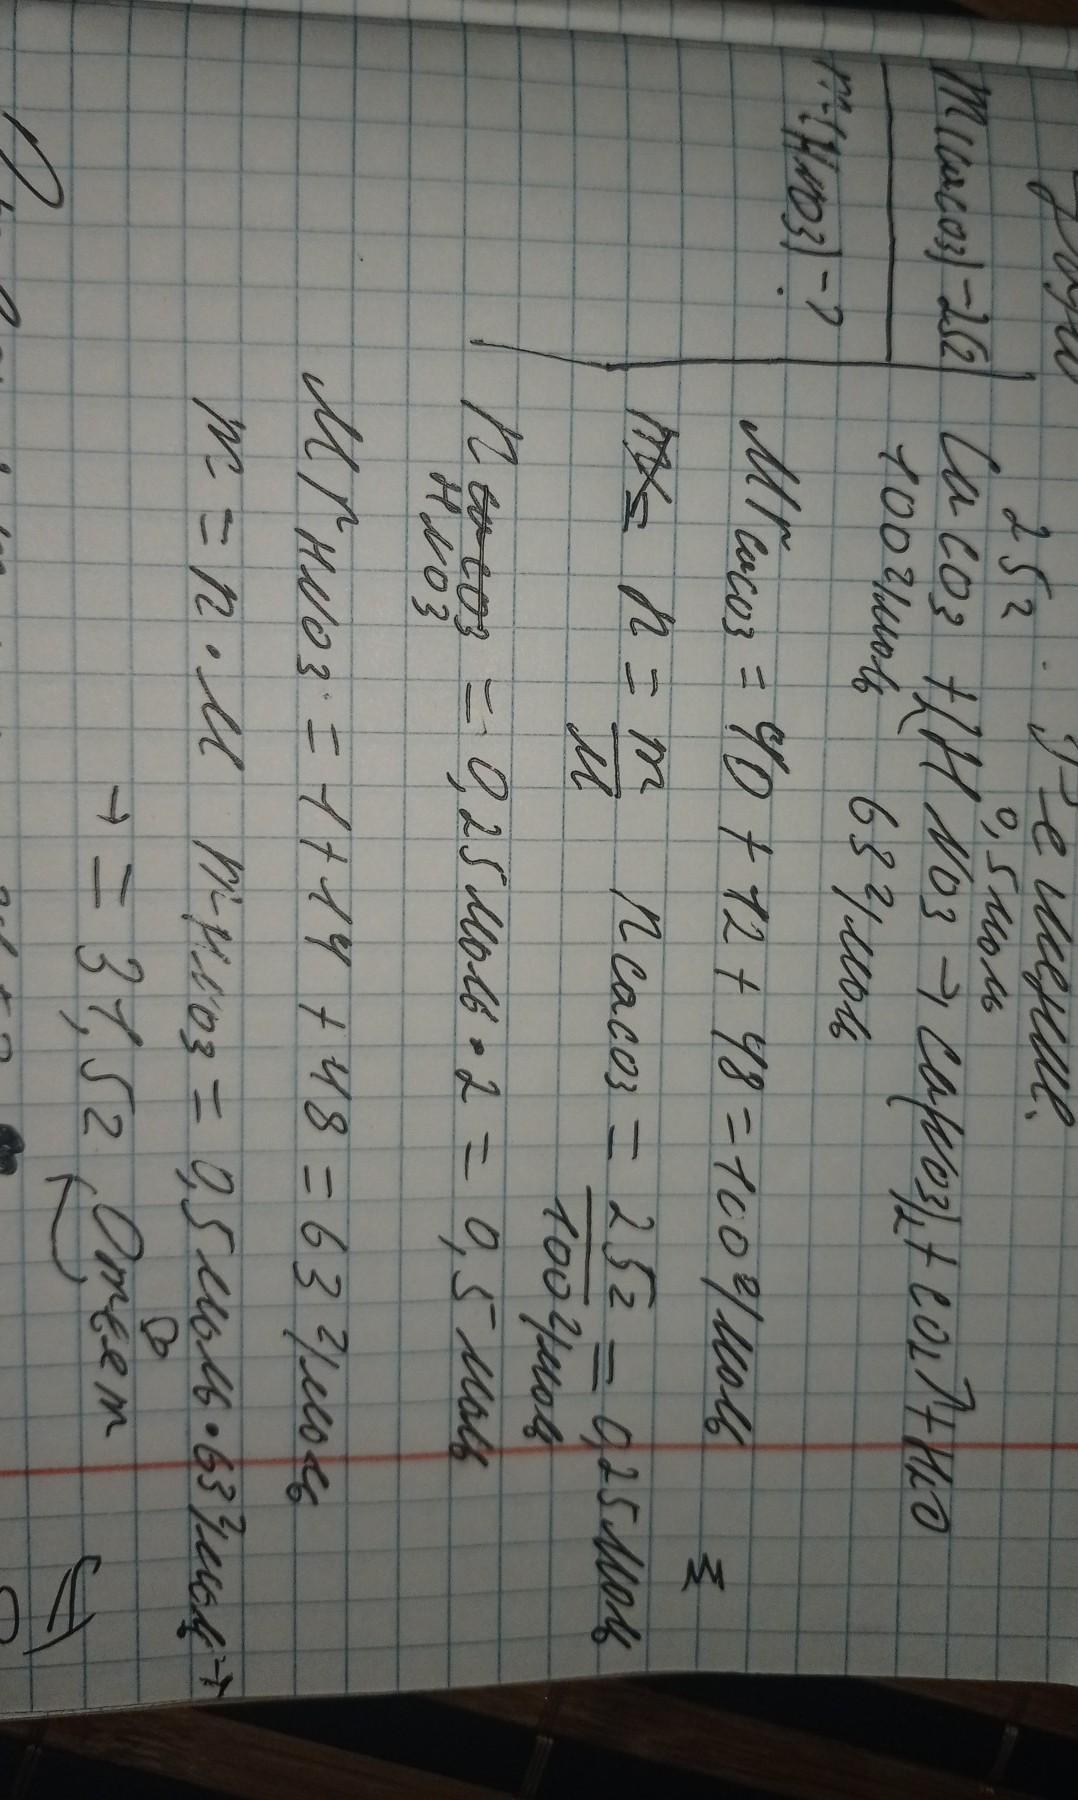 Решение.
m(CaCO3) - 25г
m(HNO3) - ?
25г 0,5моль
CaCO3 + 2HNO3 → Ca(NO3)2 + CO2↑ + H2O
100г/моль 63г/моль
Mr CaCO3 = 40 + 12 + 48 = 100г/моль
n = m/M n CaCO3 = 25г/100г/моль = 0,25моль
n HNO3 = 0,25моль · 2 = 0,5 моль
Mr HNO3 = 1 + 14 + 48 = 63 г/моль
m = n · M m HNO3 = 0,5моль · 63г/моль →
→ = 31,5г Ответ